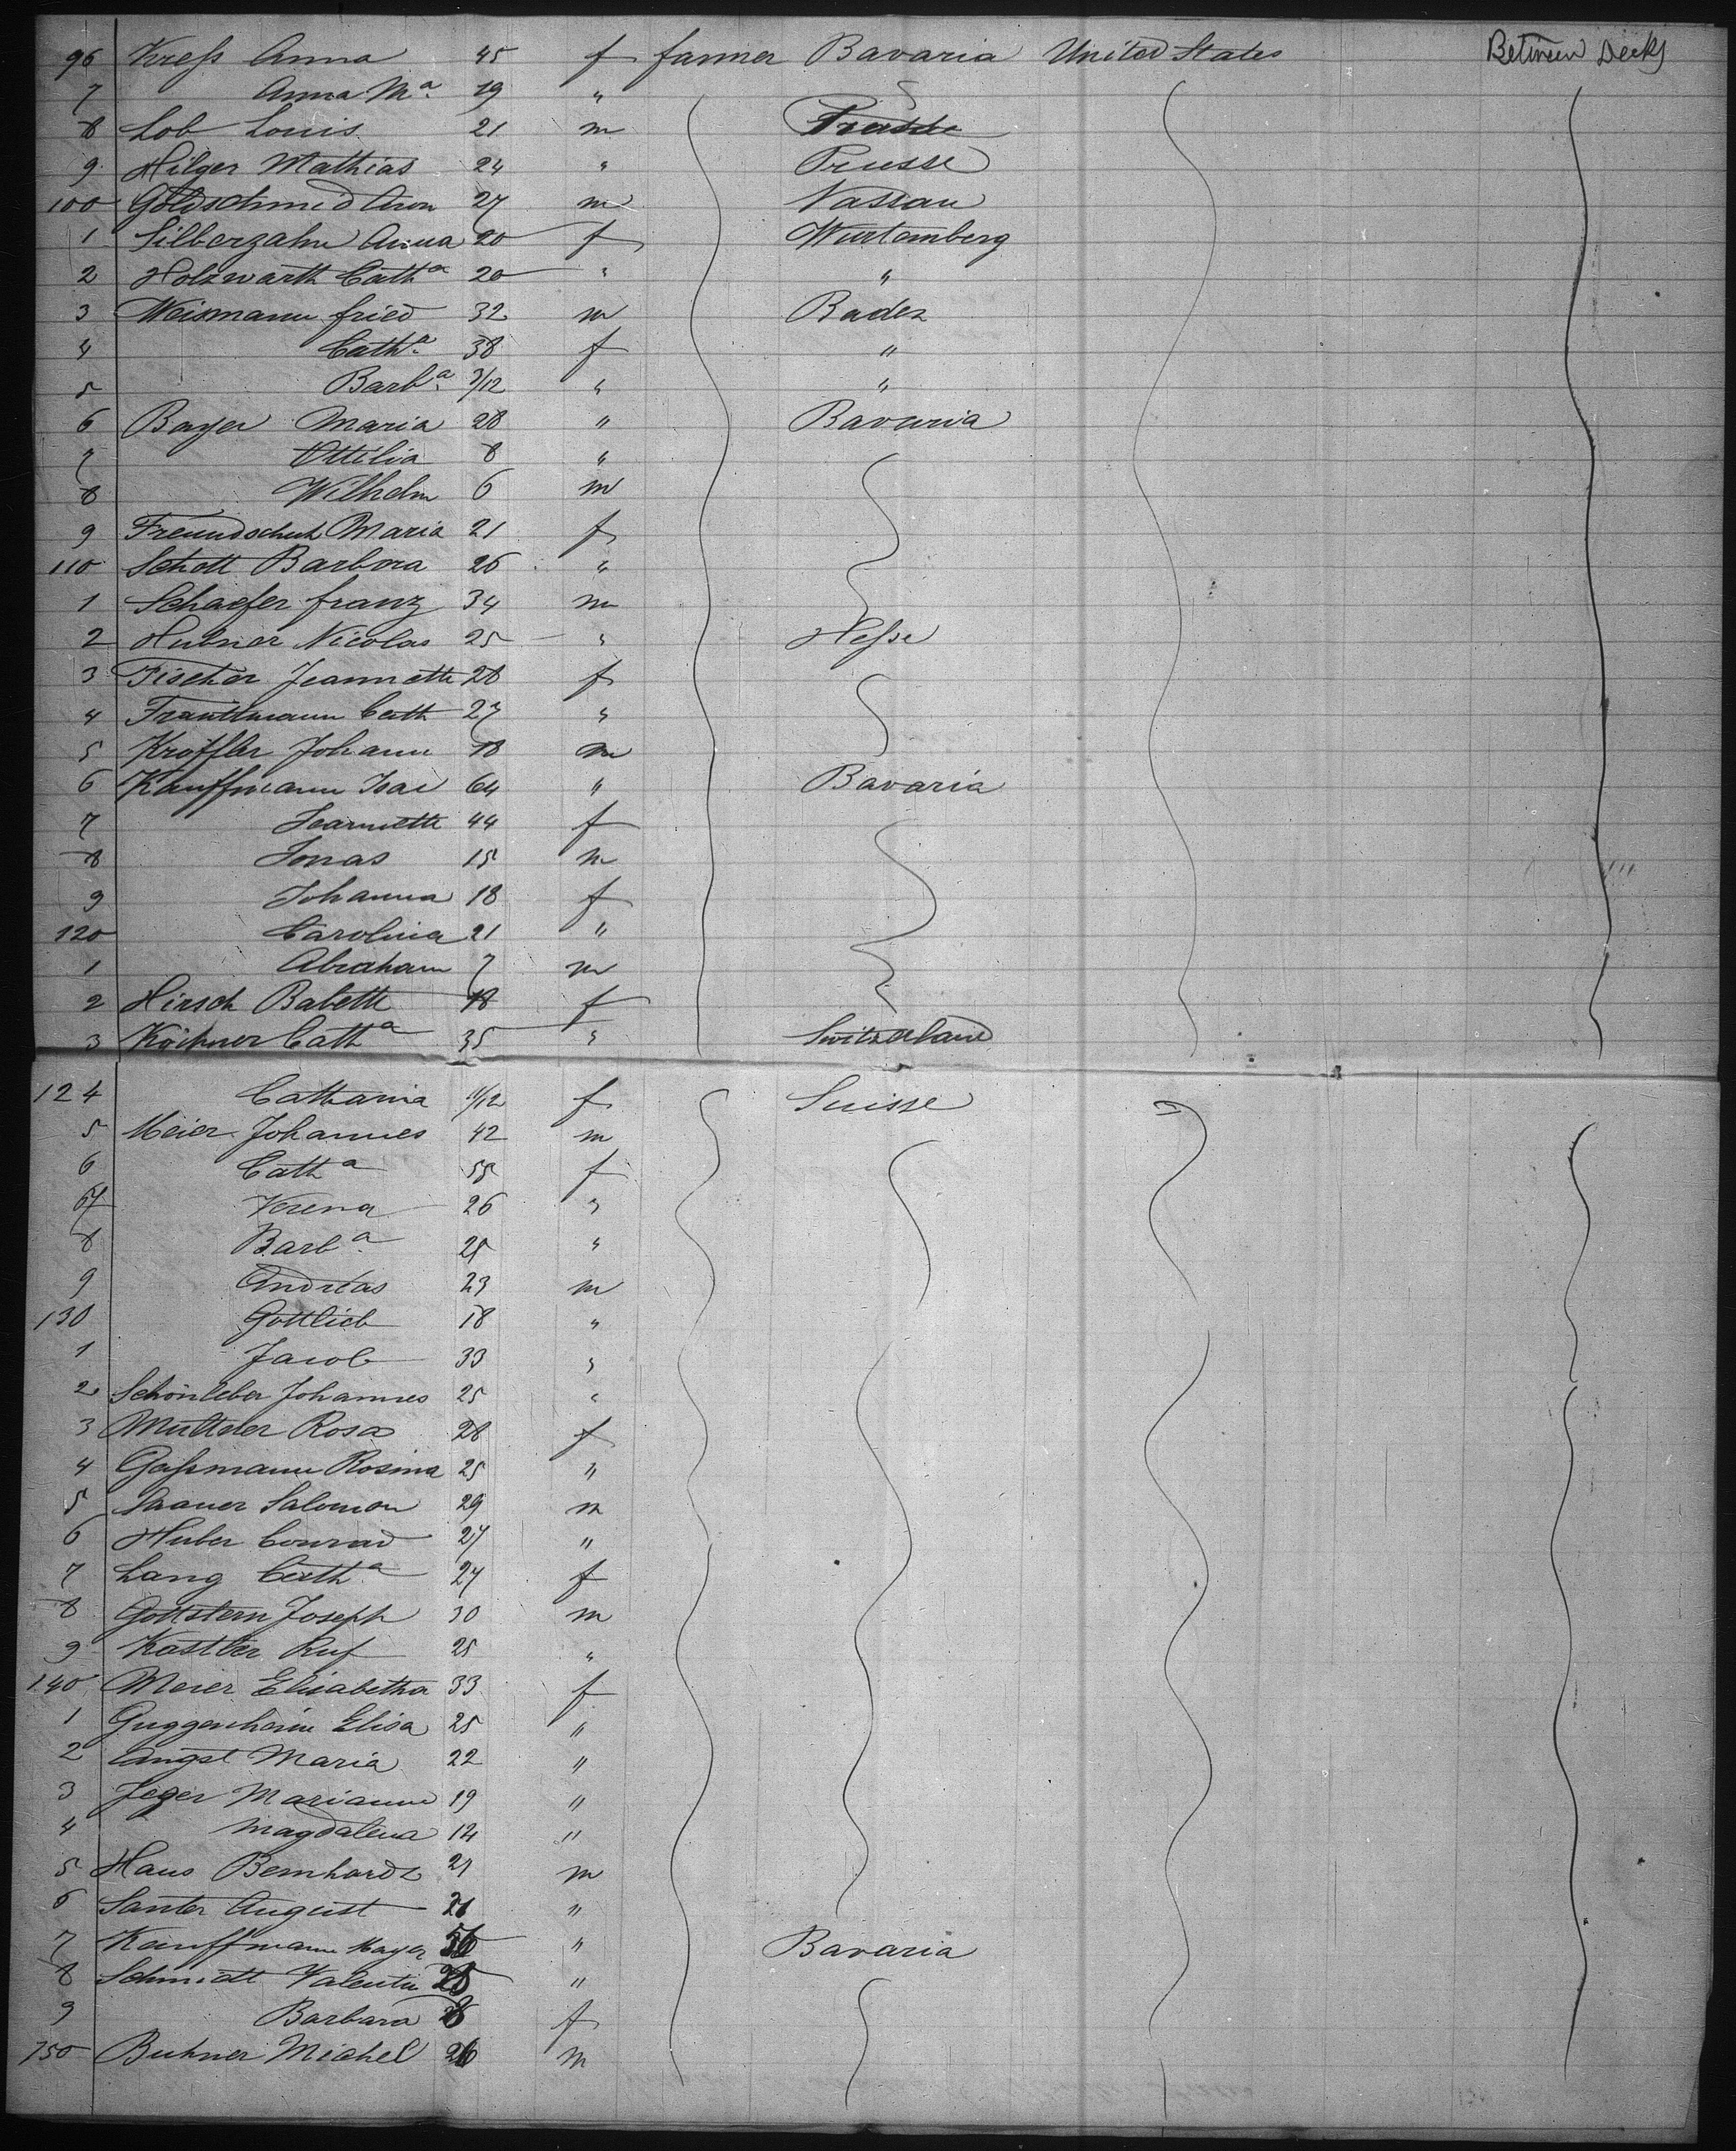 96 Kreſs Anna 45 f farmer Bavaria United States Between Decks
7 Anna Mᵃ 19 "
8 Lob Louis 21 m
9 Hilger Mathias 24 " Prusse
100 Goldschmid Aron 27 m Nassau
1 Silberzahn Anna 20 f Wurtemberg
2 Holzwarth Cathᵃ 20 " "
3 Weismann fried 32 m Baden
4 Cathᵃ 38 f "
5 Barbᵃ 3/12 " "
6 Bayer Maria 28 " Bavaria
7 Ottilia 8 "
8 Wilhelm 6 m
9 Freundschuh Maria 21 f
110 Schott Barbora 26 "
1 Schaefer franz 34 m
2 Hubner Nicolas 25 " Heſse
3 Fischer Jeannette 28 f
4 Trautmann Cath 27 "
5 Kröffler Johann 18 m
6 Kauffmann Isac 64 " Bavaria
7 Jeannette 44 f
8 Jonas 15 m
9 Johanna 18 f
120 Carolina 21 "
1 Abraham 7 m
2 Hirsch Babette 18 f
3 Köchner Cathᵃ 35 " Switzerland
124 Catharina 11/12 f Suisse
5 Meier Johannes 42 m
6 Cathᵃ 55 f
7 Verena 26 "
8 Barbᵃ 25 "
9 Andreas 23 m
130 Gottlieb 18 "
1 Jacob 33 "
2 Schönleber Johannes 25 "
3 Rosa 28 f
4 Gaſsmann Rosina 25 "
5 Saaner Salomon 29 m
6 Huber Conrad 27 "
7 Lang Cathᵃ 27 f
8 Gottstern Joseph 30 m
9 Kastler Ruf 25 "
140 Meier Elisabetha 33 f
1 Guggenheim Elisa 25 "
2 Angst Maria 22 "
3 Jeger Marianne 19 "
4 Magdalena 14 "
5 Haus Bernhardt 21 m
6 Santer August 21 "
7 Kauffmann Mayer 56 " Bavaria
8 Schmidt Valentin "
9 Barbara f
150 Buhner Michel 26 m